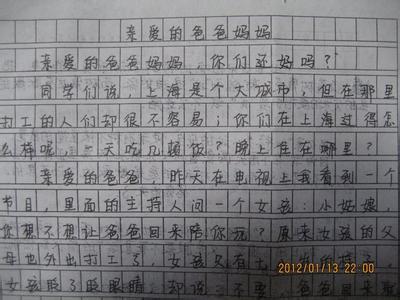 亲爱的爸爸妈妈
亲爱的爸爸妈妈，你们还好吗？
同学们说，上海是个大城市，但在那里
打工的人们却很不容易；你们在上海过得怎
么样呢，一天吃几顿饭？晚上住在哪里？
亲爱的爸爸，昨天在电视上我看到一个
节目，里面的主持人问一个女孩：小姑娘，
您想不想让爸爸回来陪你玩？原来女孩的父
母也外出打工了，女孩只有七
女孩眨了眨眼睛，却说：不要，爸爸
2012/01/13 22:00